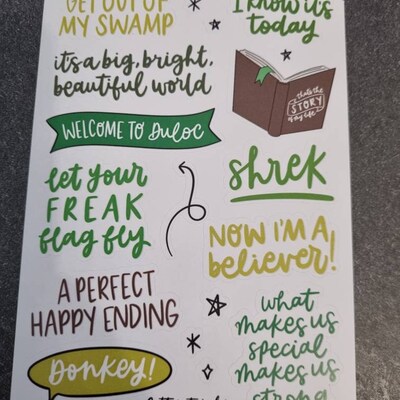 GET OUT OF
MY SWAMP
I know it's
today
it's a big, bright,
beautiful world
that's the
STORY
of my life
WELCOME TO Duloc
let your
FREAK
flag fly
shrek
NOW I'M A
believer!
A PERFECT
HAPPY ENDING
what
makes us
special
makes us
strong
Donkey!